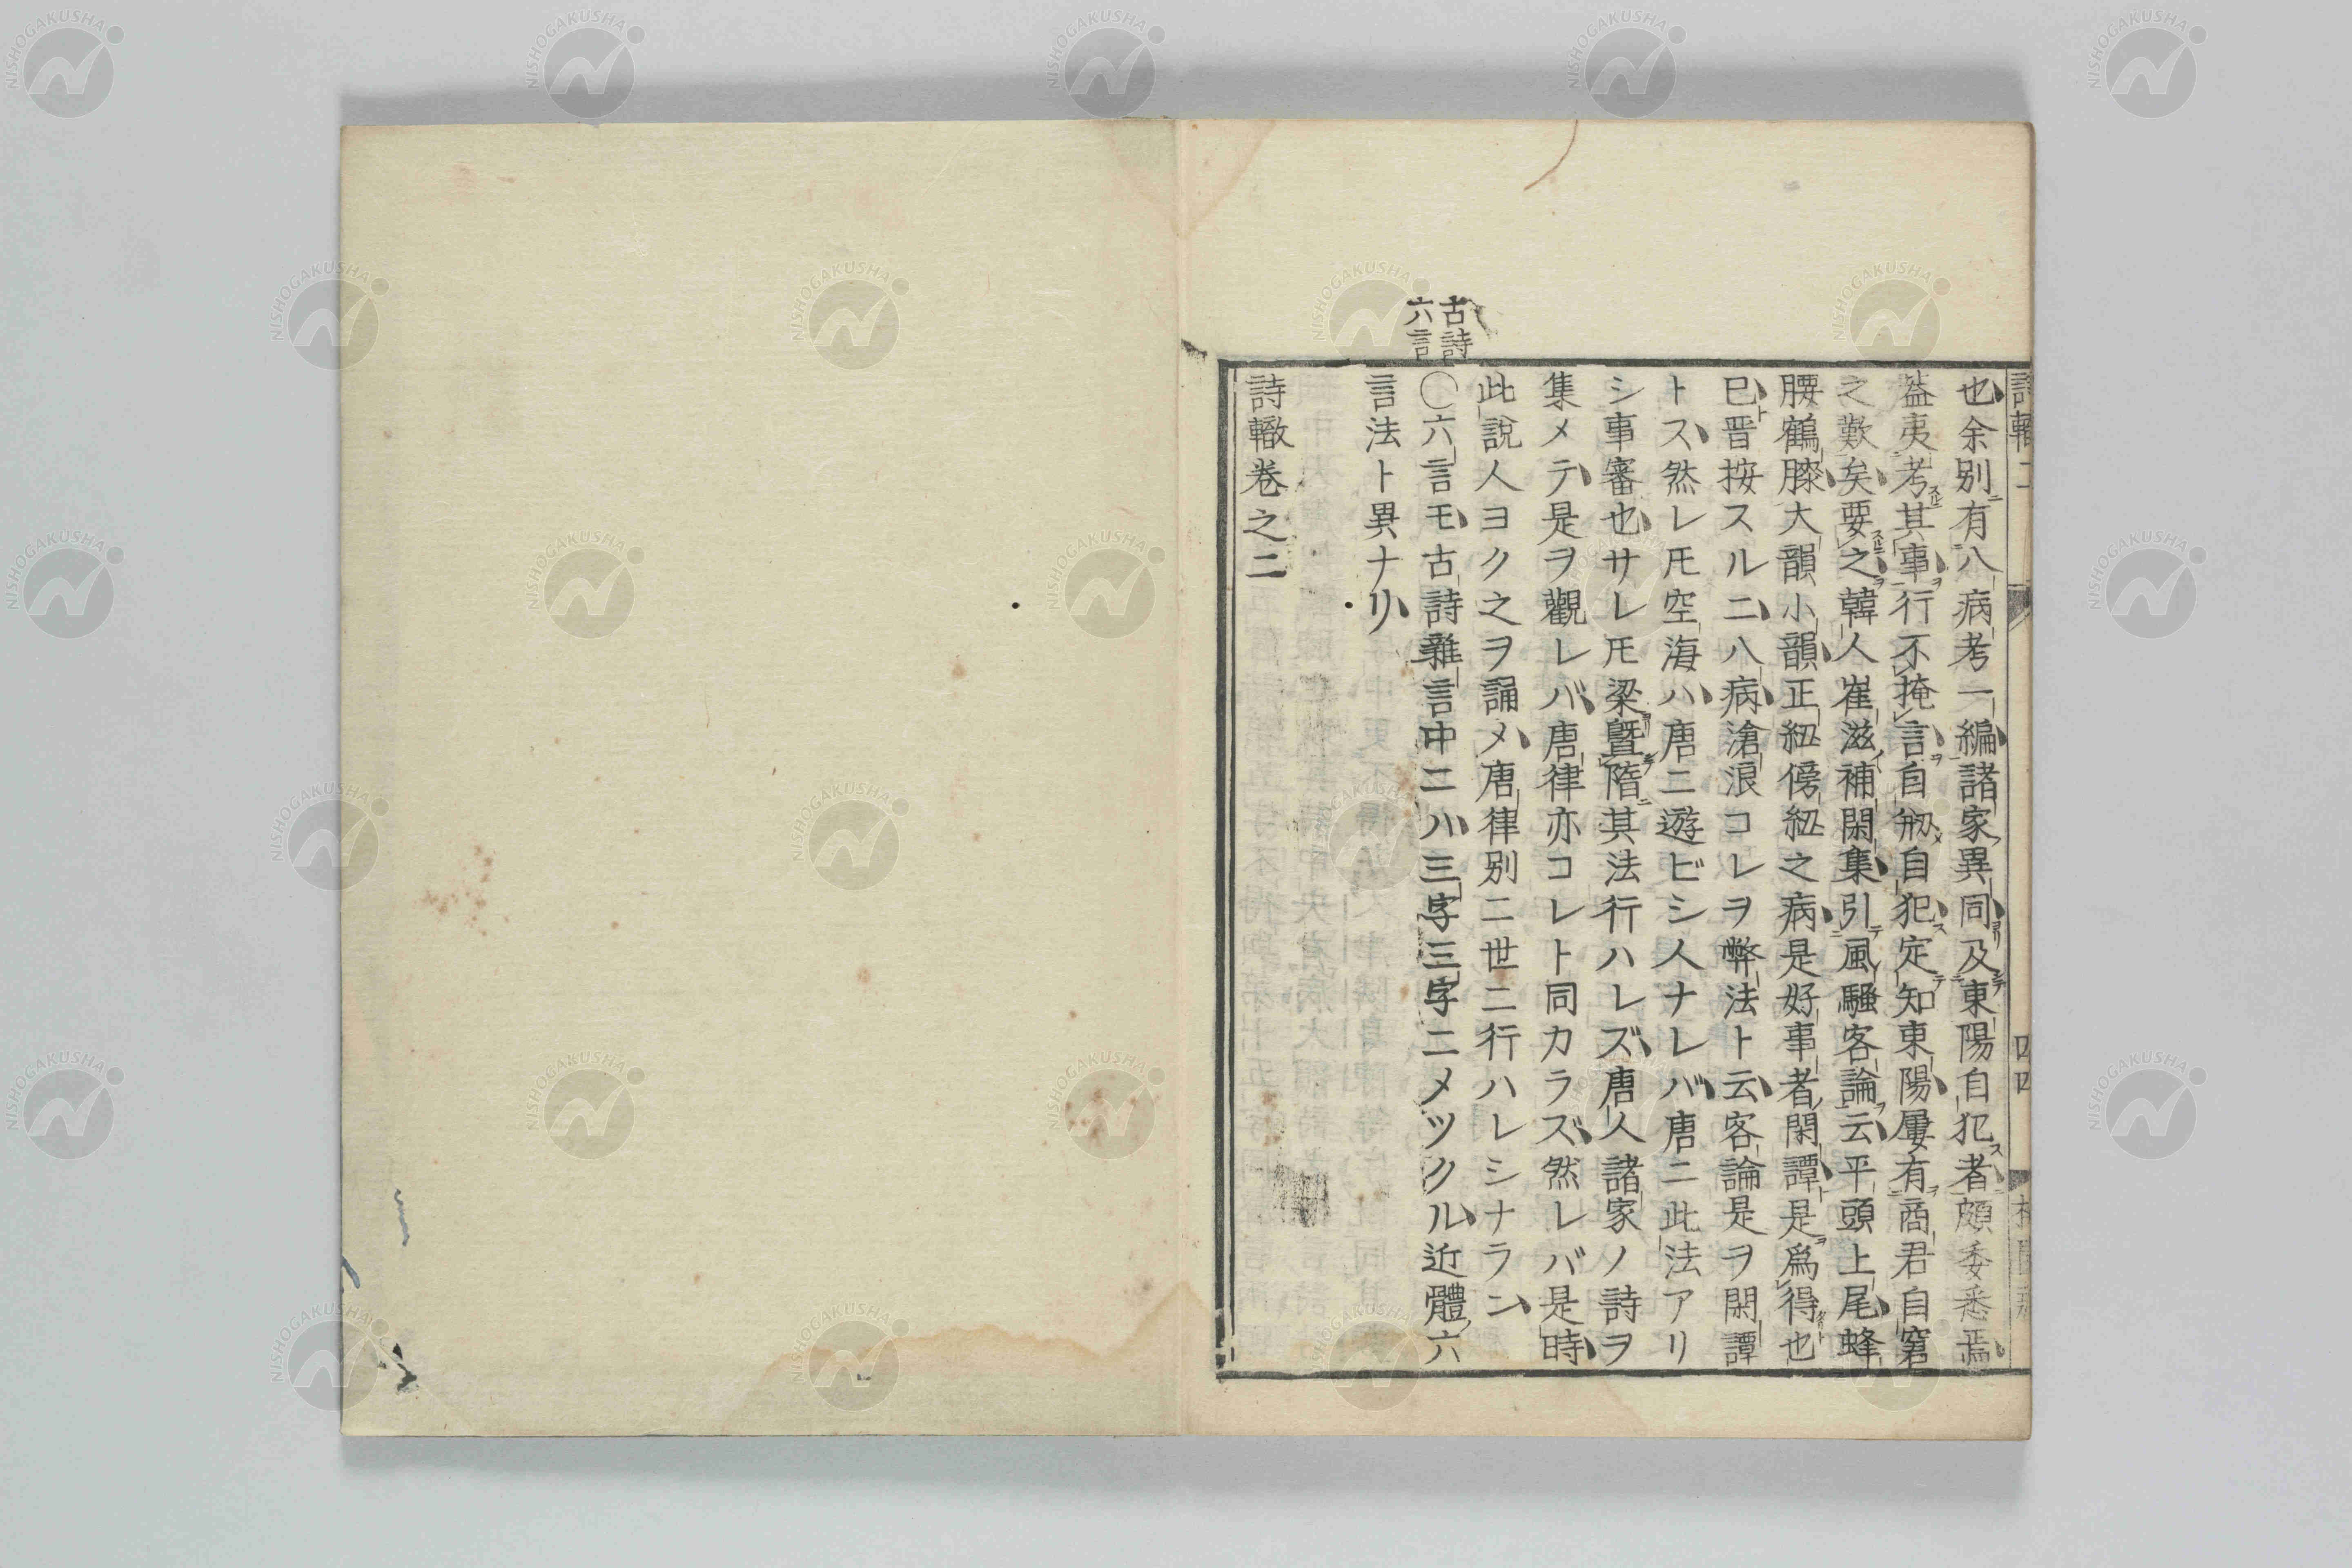 也余別有八病考一編諸家異同及東陽自犯者頗委悉焉
盍夷考其事行不掩言自剏自犯定知東陽屢有商君自窘
之歎矣要之韓人崔滋補閑集引風騷客論云平頭上尾蜂
腰鶴膝大韻小韻正紐傍紐之病是好事者閑譚是爲得也
已晋按スルニ八病滄浪コレヲ弊法ト云客論是ヲ閑譚
トス然レ𪜈空海ハ唐ニ遊ビシ人ナレバ唐ニ此法アリ
シ事審也サレ𪜈梁曁隋其法行ハレズ唐人諸家ノ詩ヲ
集メテ是ヲ觀レバ唐律亦コレト同カラズ然レバ是時
此說人ヨク之ヲ誦メ唐律別ニ世ニ行ハレシナラン
古詩
六言
〇六言モ古詩雜言中ニハ三字三字ニメツクル近體六
言法ト異ナリ
詩轍卷之二
NISHOGAKUSHA